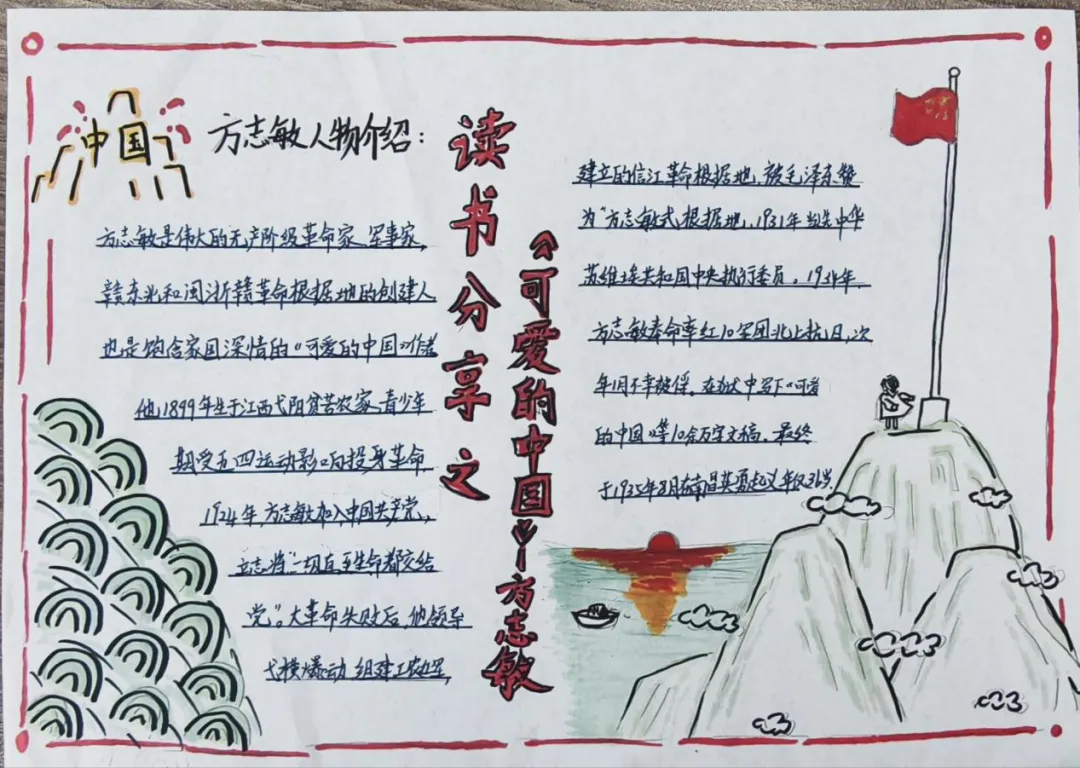 中国
方志敏人物介绍：
方志敏是伟大的无产阶级革命家、军事家，
赣东北和闽浙赣革命根据地的创建人
也是饱含家国深情的《可爱的中国》作者
他1899年生于江西弋阳贫苦农家、青少年
期受五四运动影响投身革命
1924年，方志敏加入中国共产党，
立志将“一切直至生命都交给
党”。大革命失败后，他领导
弋横爆动，组建工农红军，
读书分享之
《可爱的中国》—方志敏
建立的信江革命根据地，被毛泽东赞
为“方志敏式”根据地，1931年当选中华
苏维埃共和国中央执行委员。1934年，
方志敏奉命率红10军团北上抗日，次
年1月不幸被俘。在狱中写下《可爱
的中国》等10余万字文稿。最终
于1935年8月在南昌英勇就义年仅36岁